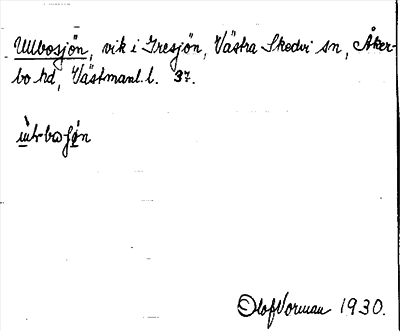 Ullbosjön, vik i Iresjön, Västra Skedvi sn, Åker-
bo hd, Västmanl. l. 37.
Olof Vorman 1930.